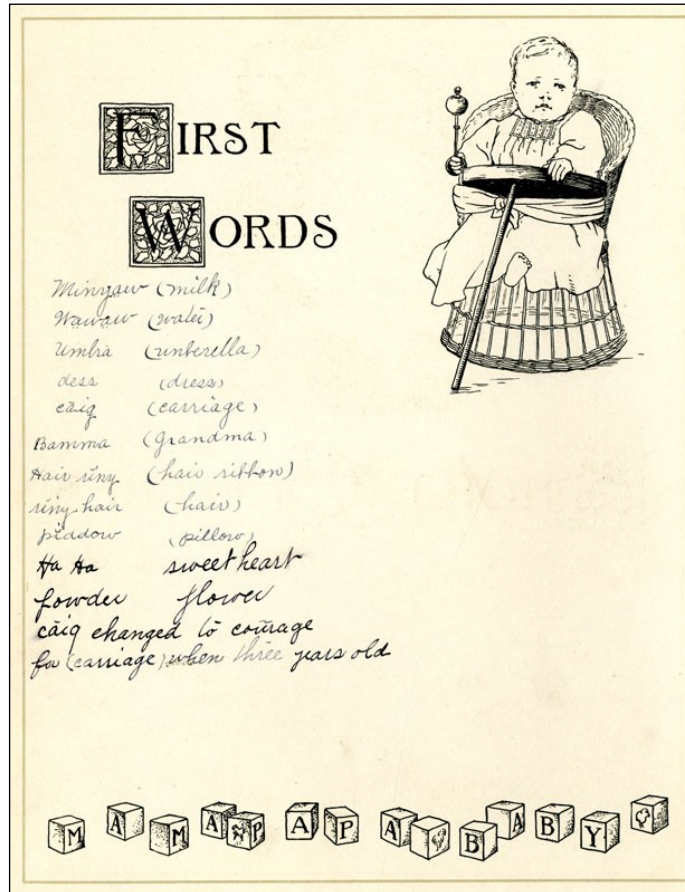 FIRST
WORDS
Minyaw (milk)
Wawaw (water)
Umbra (umberella)
dess (dress)
cāig (carriage)
Bamma (Grandma)
Hair riny (hair ribbon)
riny hair (hair)
piddow (pillow)
Ha Ha sweetheart
fowder flower
cāig changed to courage
for (carriage) when three years old
M A M A P A P A B A B Y